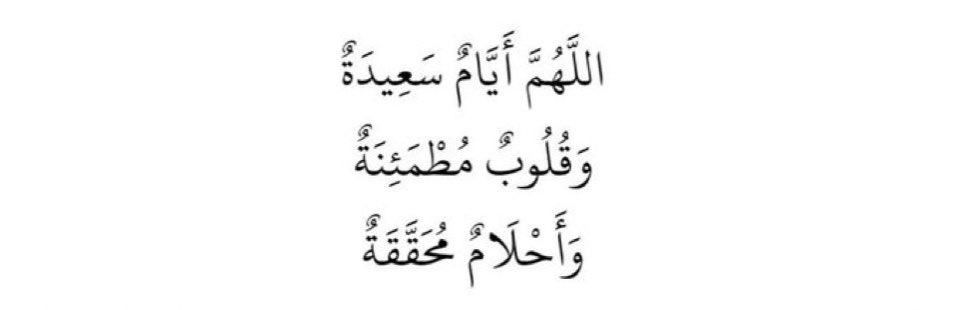 اللَّهُمَّ أَيَّامٌ سَعِيدَةٌ
وَقُلُوبٌ مُطْمَئِنَةٌ
وَأَحْلَامٌ مُحَقَّقَةٌ